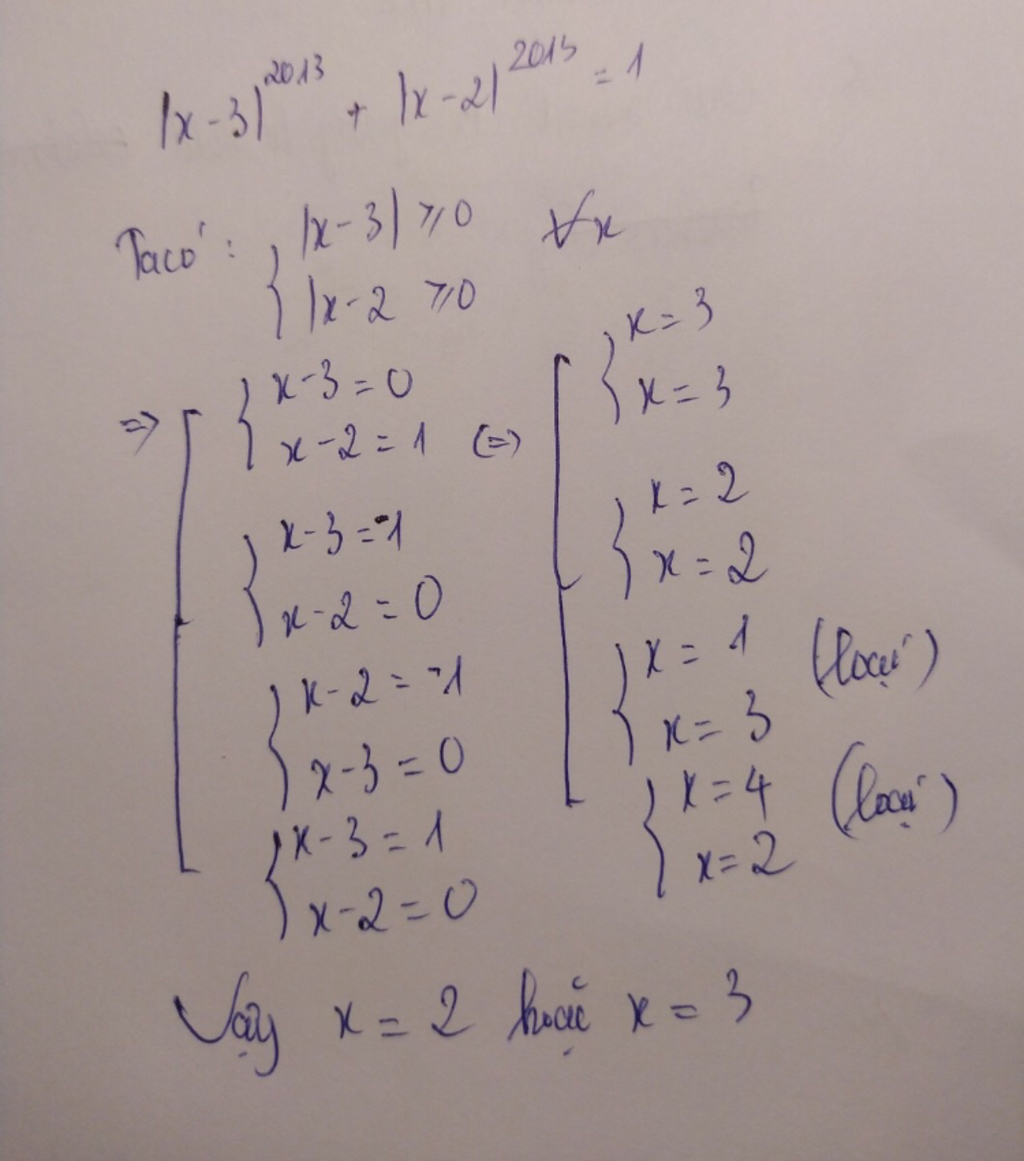 |x-3|^2013 + |x-2|^2013 = 1
Ta có: { |x-3| ≥ 0 ∀x
{ |x-2 ≥ 0
=> [ { x-3 = 0
{ x-2 = 1
{ x-3 = -1
{ x-2 = 0
{ x-2 = -1
{ x-3 = 0
{ x-3 = 1
{ x-2 = 0
(=> [ { x = 3
{ x = 3
{ x = 2
{ x = 2
{ x = 1 (loại)
{ x = 3
{ x = 4 (loại)
{ x = 2
Vậy x = 2 hoặc x = 3